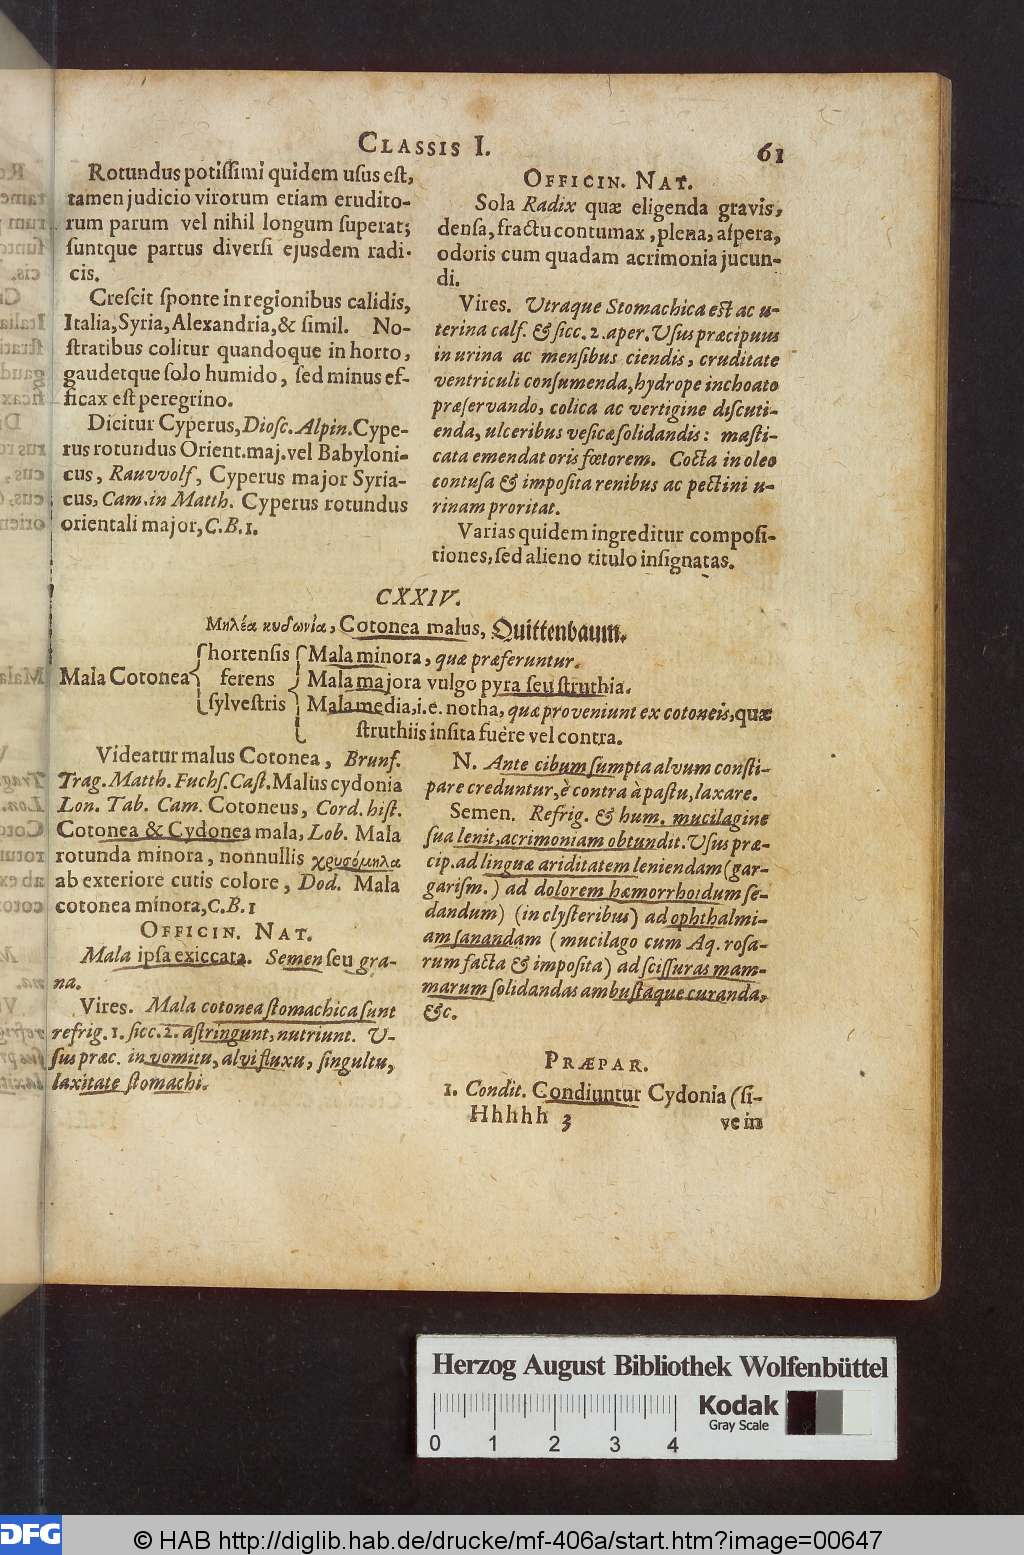 CLASSIS I.
61
Rotundus potiſſimi quidem uſus eſt,
tamen judicio virorum etiam erudito-
rum parum vel nihil longum ſuperat;
ſuntque partus diverſi ejusdem radi-
cis.
Creſcit ſponte in regionibus calidis,
Italia, Syria, Alexandria, & ſimil. No-
ſtratibus colitur quandoque in horto,
gaudetque ſolo humido, ſed minus ef-
ficax eſt peregrino.
Dicitur Cyperus, Dioſc. Alpin. Cype-
rus rotundus Orient. maj. vel Babyloni-
cus, Rauvvolf, Cyperus major Syria-
cus, Cam. in Matth. Cyperus rotundus
orientali major, C. B. 1.
OFFICIN. NAT.
Sola Radix quæ eligenda gravis,
denſa, fractu contumax, plena, aſpera,
odoris cum quadam acrimonia jucun-
di.
Vires. Utraque Stomachica eſt ac u-
terina calf. & ſicc. 2. aper. Uſus præcipuus
in urina ac menſibus ciendis, cruditate
ventriculi conſumenda, hydrope inchoato
præſervando, colica ac vertigine diſcuti-
enda, ulceribus veſicæ ſolidandis: maſti-
cata emendat oris fœtorem. Cocta in oleo
contuſa & impoſita renibus ac pectini u-
rinam proritat.
Varias quidem ingreditur compoſi-
tiones, ſed alieno titulo inſignatas.
CXXIV.
Μηλέα κυδωνία, Cotonea malus, Quittenbaum.
Mala Cotonea
hortenſis
ferens
ſylveſtris
Mala minora, quæ præferuntur.
Mala majora vulgo pyra ſeu ſtruthia.
Mala media, i.e. notha, quæ proveniunt ex cotoneis, quæ
ſtruthiis inſita fuêre vel contra.
Videatur malus Cotonea, Brunf.
Trag. Matth. Fuchſ. Caſt. Malus cydonia
Lon. Tab. Cam. Cotoneus, Cord. hiſt.
Cotonea & Cydonea mala, Lob. Mala
rotunda minora, nonnullis χρυσόμηλα
ab exteriore cutis colore, Dod. Mala
cotonea minora, C. B. 1
OFFICIN. NAT.
Mala ipſa exiccata. Semen ſeu gra-
na.
Vires. Mala cotonea ſtomachica ſunt
refrig. 1. ſicc. 2. aſtringunt, nutriunt. U-
ſus præc. in vomitu, alvi fluxu, ſingultu,
laxitate ſtomachi.
N. Ante cibum ſumpta alvum conſti-
pare creduntur, è contra à paſtu, laxare.
Semen. Refrig. & hum. mucilagine
ſua lenit, acrimoniam obtundit. Uſus præ-
cip. ad linguæ ariditatem leniendam (gar-
gariſm.) ad dolorem hæmorrhoidum ſe-
dandum) (in clyſteribus) ad ophthalmi-
am ſanandam (mucilago cum Aq. roſa-
rum facta & impoſita) ad ſciſſuras mam-
marum ſolidandas ambuſtaque curanda,
&c.
PRÆPAR.
1. Condit. Condiuntur Cydonia (ſi-
Hhhhh 3
ve in
Herzog August Bibliothek Wolfenbüttel
Kodak
Gray Scale
0 1 2 3 4
DFG
© HAB http://diglib.hab.de/drucke/mf-406a/start.htm?image=00647